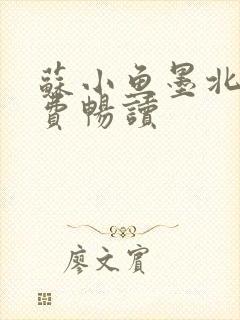 蘇小魚墨北
費暢讀
廖文賓